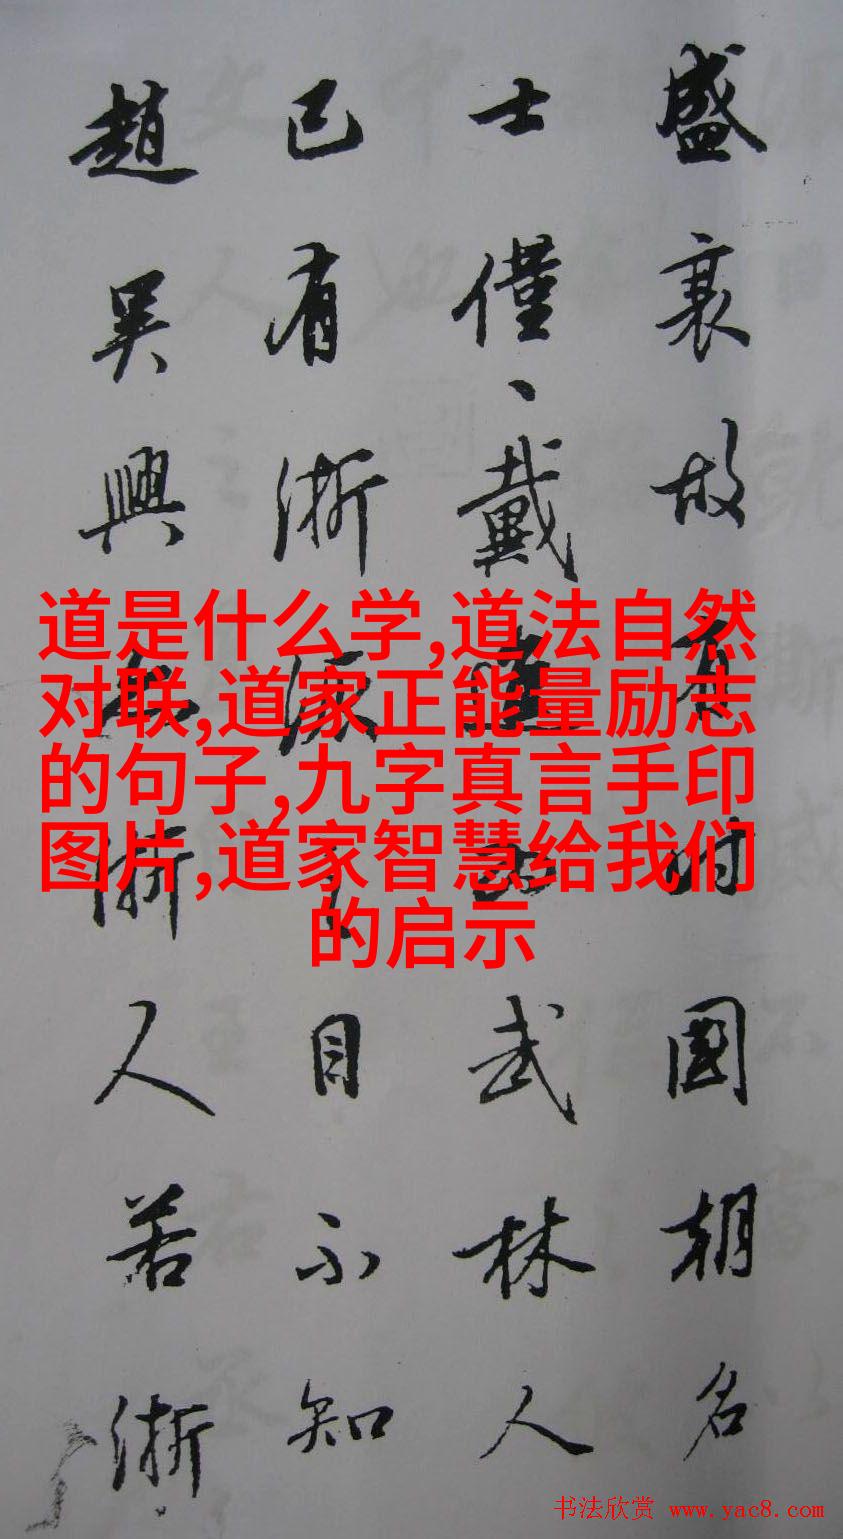 盛衰故有时國朝名
士僅、戴進武林人
已有浙派之目不知
趙吳興亦浙人若浙
道是什么学,道法自然
对联,道家正能量励志
的句子,九字真言手印
图片,道家智慧给我们
的启示
书法欣赏 www.yac8.com